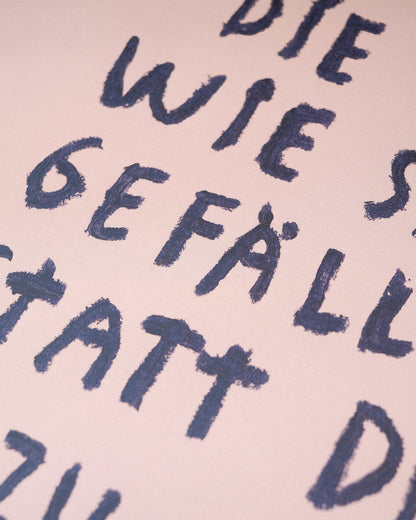 DIE
WIE S
GEFÄLL
STATT D
ZU